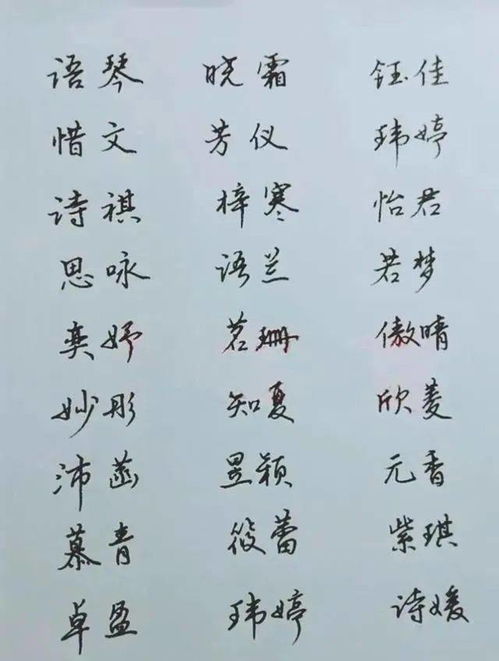 语琴 晓霜 钰佳
惜文 芳仪 玮婷
诗祺 梓寒 怡君
思咏 语兰 若梦
奕妤 茗珊 傲晴
妙彤 知夏 欣菱
沛菡 昱颖 元香
慕青 筱蕾 紫琪
卓盈 玮婷 诗媛